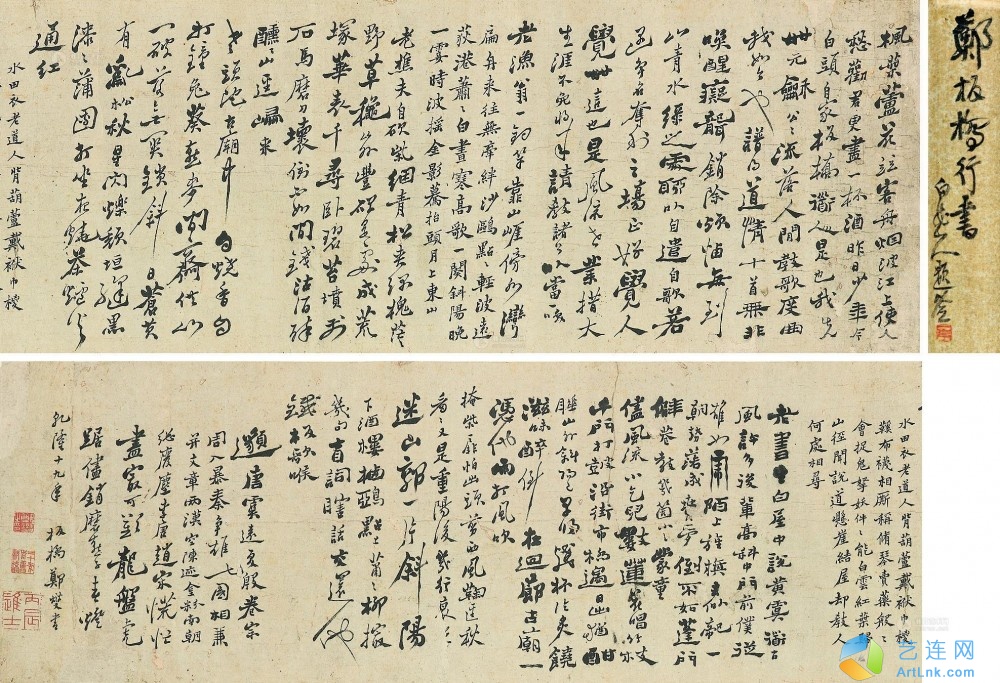 鄭板橋行書
楓葉蘆花並客舟烟波江上使人
愁勸君更盡一杯酒昨日少年今
白頭自家板橋道人是也我先
世元龢公公流落人間教歌度曲
我如今也譜得道情十首無非
喚醒癡聾銷除煩惱每到
山青水綠之處聊以自遣自歌若
遇爭名奪利之場正好覺人
覺世這也是風流世業措大
生涯不免將來請教諸公以當一咲
老漁翁一釣竿靠山崖傍水灣
扁舟來往無牽絆沙鷗點々輕波遠
荻港蕭々白晝寒高歌一曲斜陽晚
一霎時波搖金影驀抬頭月上東山
老樵夫自砍柴綑青松夾綠槐茫々
野草秋山外豐碑是處成荒
塚華表千尋臥碧苔墳前
石馬磨刀壞倒不如閒錢沽酒醉
醺々山徑歸來
老頭陀古廟中自燒香自
打鐘兔葵燕麥閒齋供山門
破落無關鎖斜日蒼黃
有亂松秋星閃爍頹垣縫黑
漆々蒲團打坐夜燒茶爐火
通紅
水田衣老道人背葫蘆戴袱巾椶
水田衣老道人背葫蘆戴袱巾椶
鞋布襪相廝稱脩琴賣藥般々
會捉鬼拏妖件々能白雲紅葉歸
山徑聞說道懸崖結屋却教人
何處相尋
老書生白屋中說黃虞道古
風許多後輩高科中門前僕從
雄如虎陌上旌旗去似龍一
朝勢落成春夢倒不如蓬門
僻巷教幾箇小小蒙童
儘風流小乞兒數蓮花唱竹枝
千門打鼓沿街市橋邊日出猶酣
睡山外斜陽已早歸殘杯冷炙饒
滋味醉倒在迴廊古廟一
憑他雨打風吹
掩柴扉怕出頭剪西風菊徑秋
看々又是重陽後幾行衰草
迷山郭一片斜陽
下酒樓棲鴉點上蕭々柳撮
幾句盲詞瞎話交還他
鐵板歌喉
邈唐虞遠夏殷卷宗
周入暴秦爭雄七國相兼
并文章兩漢空陳迹金粉南朝
總廢塵李唐趙宋慌忙
盡最可歎龍盤虎
踞儘銷磨燕子春燈
乾隆十九年 板橋鄭燮書
艺连网
ArtLnk.com